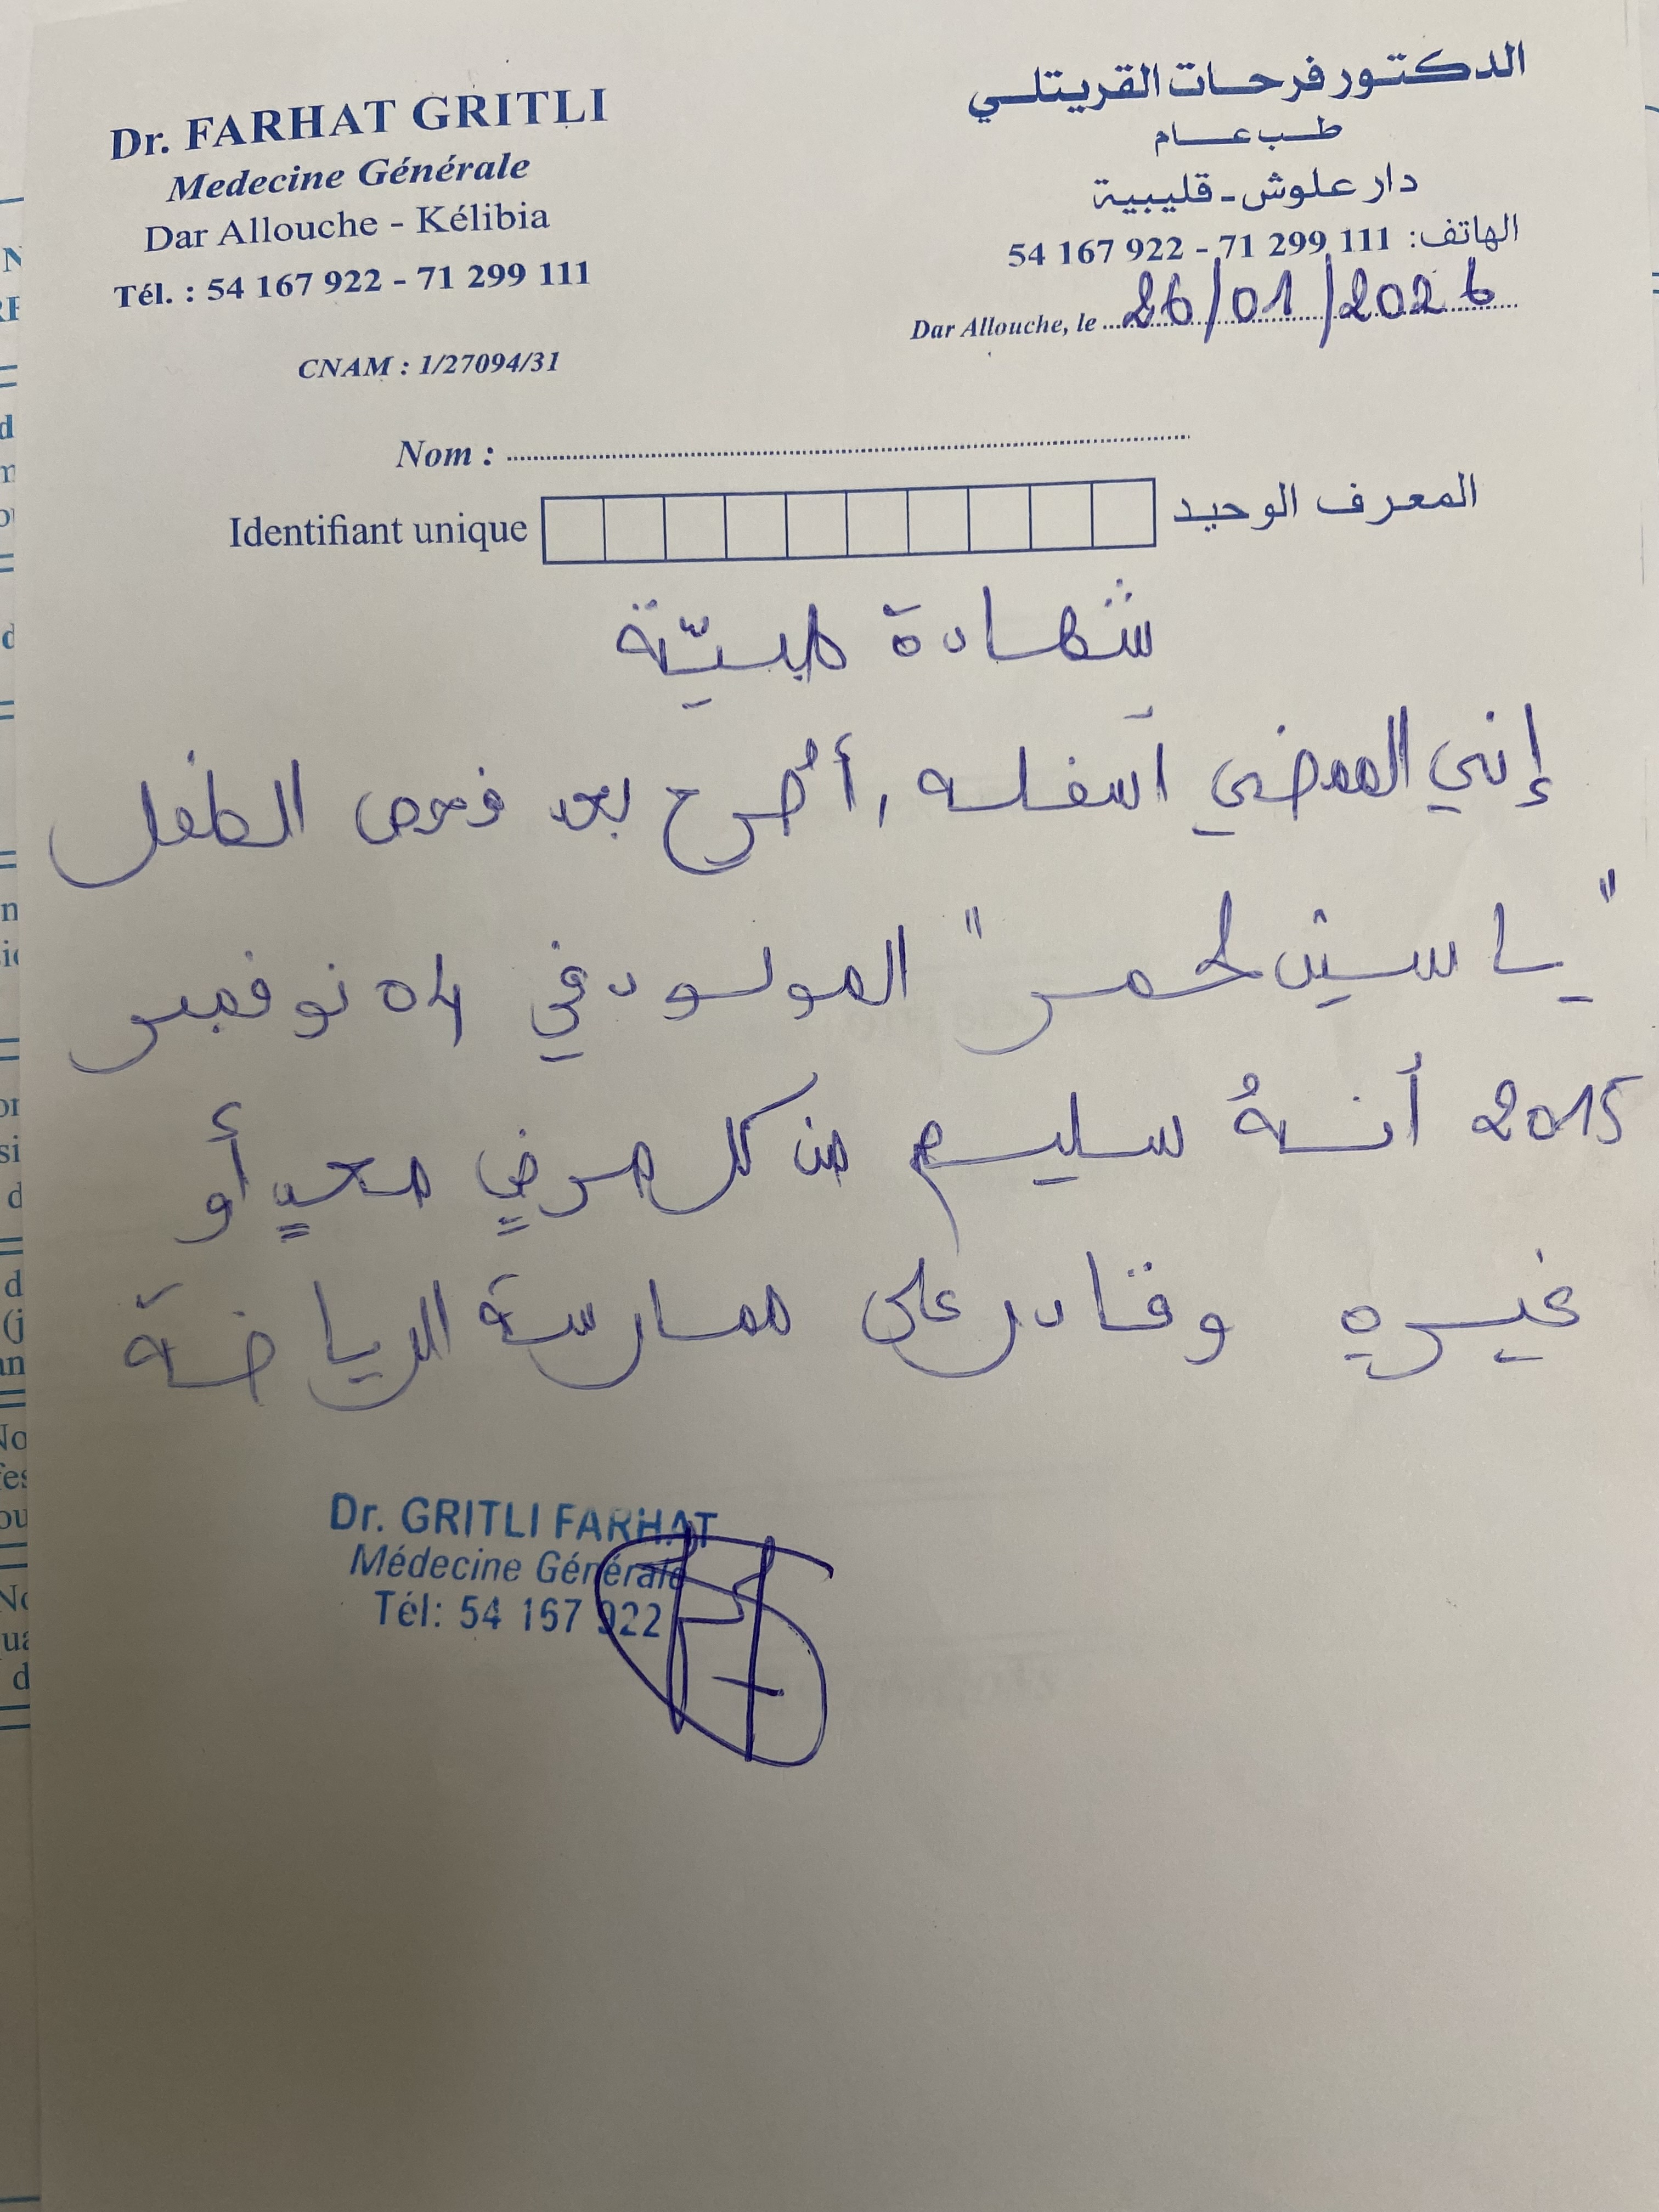 Dr. FARHAT GRITLI
Medecine Générale
Dar Allouche - Kélibia
Tél. : 54 167 922 - 71 299 111
CNAM : 1/27094/31
الدكتور فرحات القريتلي
طب عام
دار علوش - قليبية
الهاتف: 111 299 71 - 922 167 54
Dar Allouche, le 26/01/2026
Nom :
Identifiant unique المعرف الوحيد
شهادة طبيّة
إنني الممضي أسفله, أصرح بعد فحص الطفل
"ياسين لحمر" المولود في 04 نوفمبر
2015 أنهُ سليم من كل مرضٍ معدٍ أو
غيره وقادر على ممارسة الرياضة
Dr. GRITLI FARHAT
Médecine Générale
Tél: 54 167 922